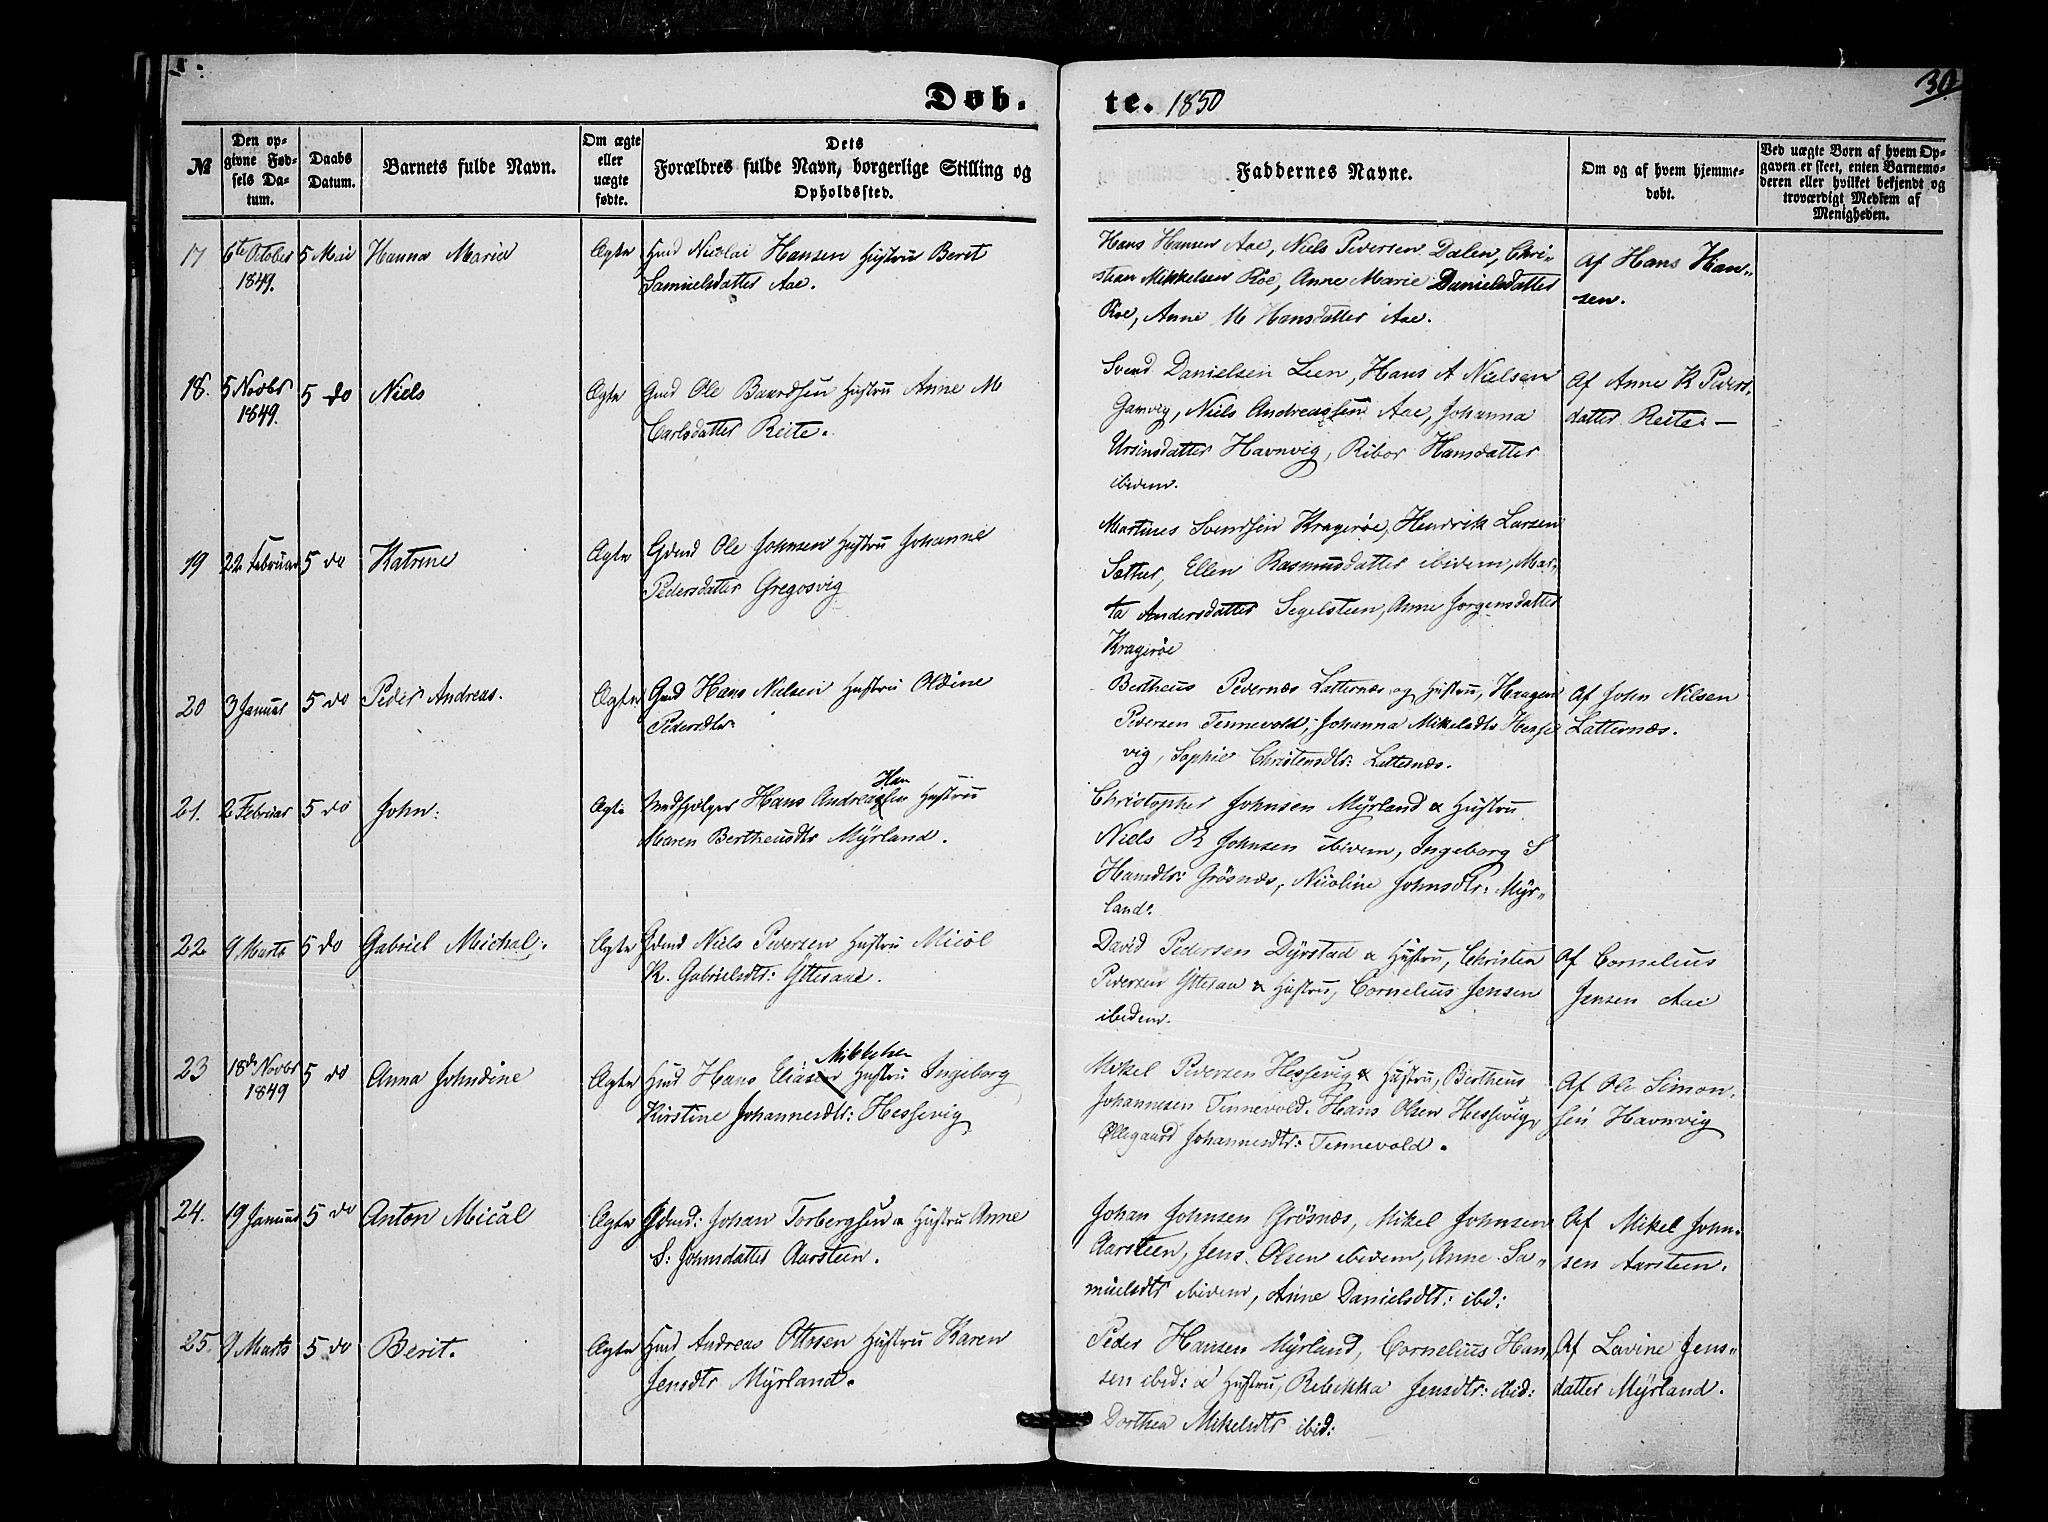 Døb. te. 1850
30
№
Den op-
givne Fød-
sels Da-
tum.
Daabs
Datum.
Barnets fulde Navn.
Om ægte
eller
uægte
fødte.
Dets
Forældres fulde Navn, borgerlige Stilling og
Opholdssted.
Faddernes Navne.
Om og af hvem hjemme-
døbt.
Ved uægte Børn af hvem Op-
gaven er skeet, enten Barnemo-
deren eller hvilket bekjendt og
troværdigt Medlem af
Menigheden.
17 6te October 5 Mai Hanna Maria Ægte Hmd Nicolai Hansen Hustru Beret
1849.
Samuelsdatter Aae.
Hans Hansen Aae, Niels Pedersen Dalen, Chri-
stian Mikkelsen Röe, Anne Marie Danielsdatter
Roe, Anne M Hansdatter Aae.
Af Hans Han-
sen.
18. 5 Novbr 5 do Niels Ægte Gmd Ole Baardsen Hustru Anne M
1849.
Carlsdatter Reite.
Svend Danielsen Leen, Hans A Nielsen
Gamvig, Niels Andreassen Aae, Johanna
Ursinsdatter Havnvig, Ribor Hansdatter
ibidem.
Af Anne K Peders-
datter Reite. —
19 22 Februar 5 do Katrine Ægte Gdmd Ole Johnsen Hustru Johanne
Pedersdatter Gregosvig
Martines Svendsen Kragerøe, Hendrik Larsen
Sæther, Ellen Rasmusdatter ibidem, Mar-
ta Andersdatter Segelsteen, Anne Jørgensdatter
Kragerøe
20 3 Januar 5 do Peder Andreas. Ægte Gmd Hans Nielsen Hustru Oldine
Pedersdtr
Bertheus Pedernæs Latternæs og Hustru, Haagen
Pedersen Tennevold, Johanna Mikelsdtr Hesse
vig, Sophie Christensdtr: Latternæs.
Af John Nilsen
Latternæs.
21. 2 Februar 5 do John: Ægte Medhjælper Hans Andreassen Hustru
Han
Maren Bertheusdtr Mÿrland.
Christopher Johnsen Mÿrland & Hustru
Niels E Johnsen ibidem, Ingeborg S
Hansdtr: Grösnæs, Nicoline Johnsdtr: Mÿr-
land.
22 9 Marts 5 do Gabriel Michal. Ægte Gdmd Niels Pedersen Hustru Micöl
K. Gabrielsdtr: Ÿtteraae.
David Pedersen Dÿrstad & Hustru, Christen
Pedersen Ÿtteraa & Hustru, Cornelius Jensen
ibidem.
Af Cornelius
Jensen Aae
23 18de Novbr 5 do Anna Johndine Ægte Hmd Hans Eliasen Hustru Ingeborg
1849
Mikkelsen
Kirstine Johannesdtr: Hessevig
Mikel Pedersen Hessevig & Hustru, Bertheus
Johannesen Tennevold. Hans Olsen Hessevig,
Ollegaard Johannesdtr: Tennevold.
Af Ole Simon-
sen Havnvig
24. 19 Januar 5 do Anton Micäl Ægte Gdmd: Johan Torbergsen & Hustru Anne
S: Johnsdatter Aarsteen.
Johan Johnsen Grösnæs, Mikel Johnsen
Aarsteen, Jens Olsen ibidem, Anne Sa-
muelsdtr ibidem, Anne Danielsdtr: ibd:
Af Mikel John-
sen Aarsteen.
25. 9 Marts 5 do Berit. Ægte Hmd Andreas Ottosen Hustru Karen
Jensdtr Mÿrland.
Peder Hansen Mÿrland, Cornelius Han-
sen ibid: & Hustru, Rebekka Jensdtr: ibid:
Dorthea Mikelsdtr ibid:
Af Lavine Jens-
datter Mÿrland.